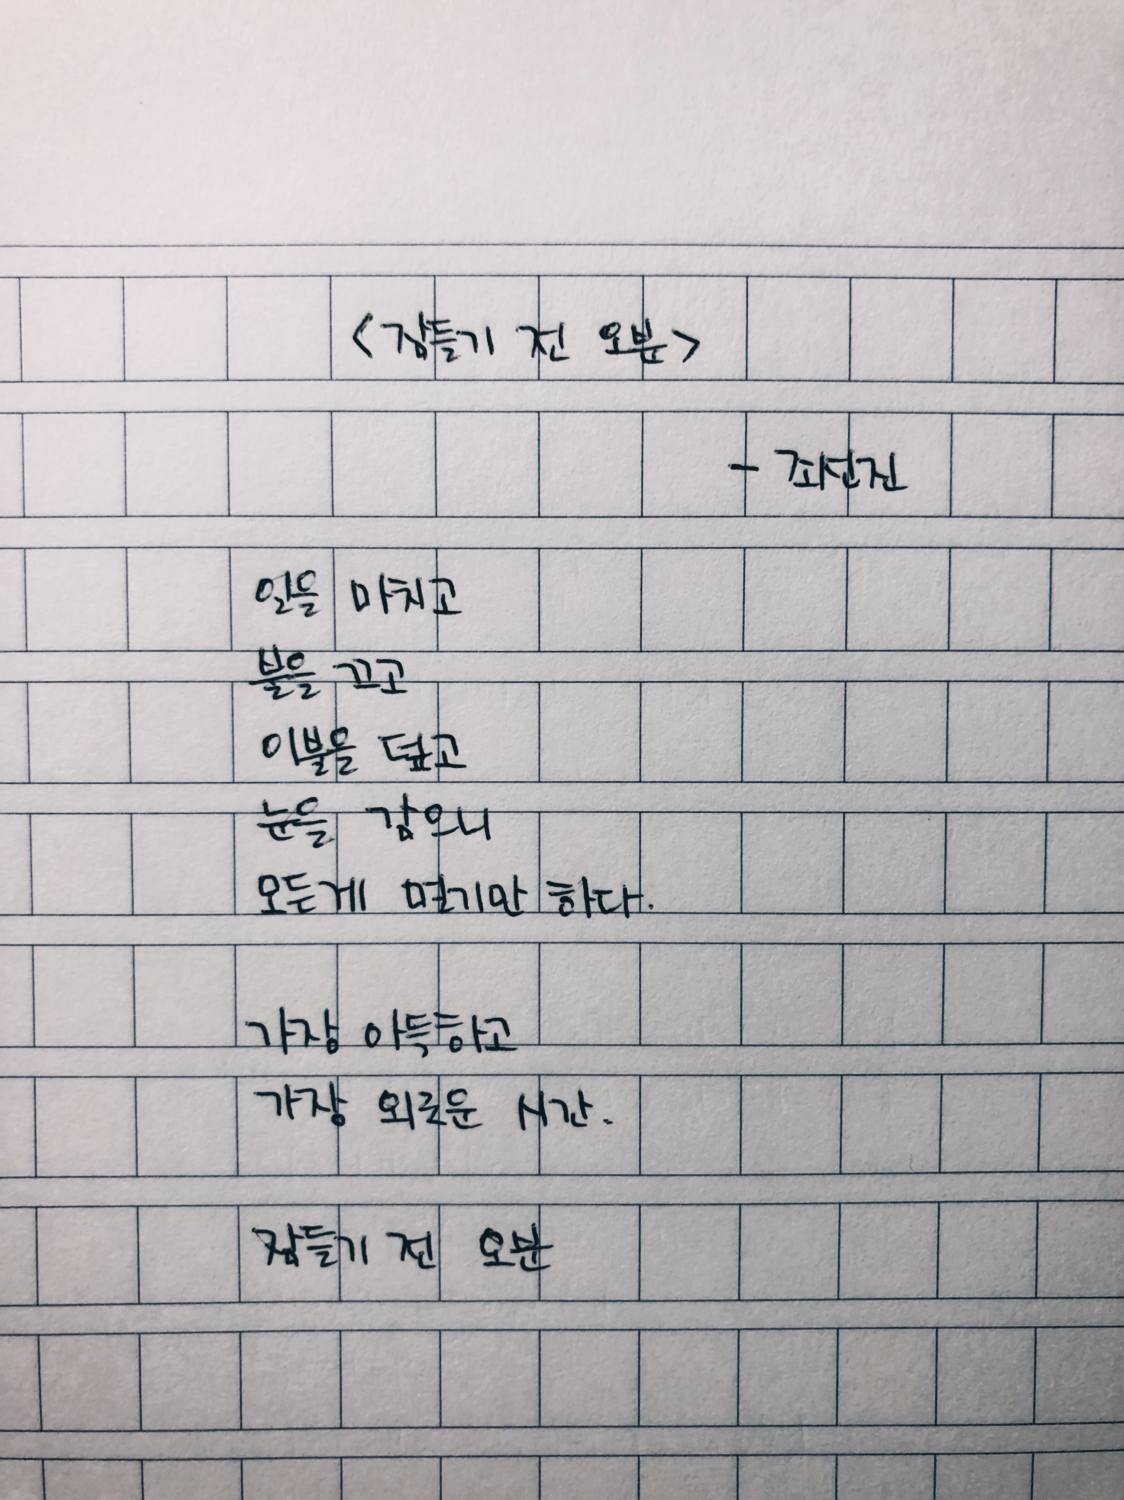 <잠들기 전 오분>
- 최선진
일을 마치고
불을 끄고
이불을 덮고
눈을 감으니
모든게 멀기만 하다.
가장 아득하고
가장 외로운 시간.
잠들기 전 오분